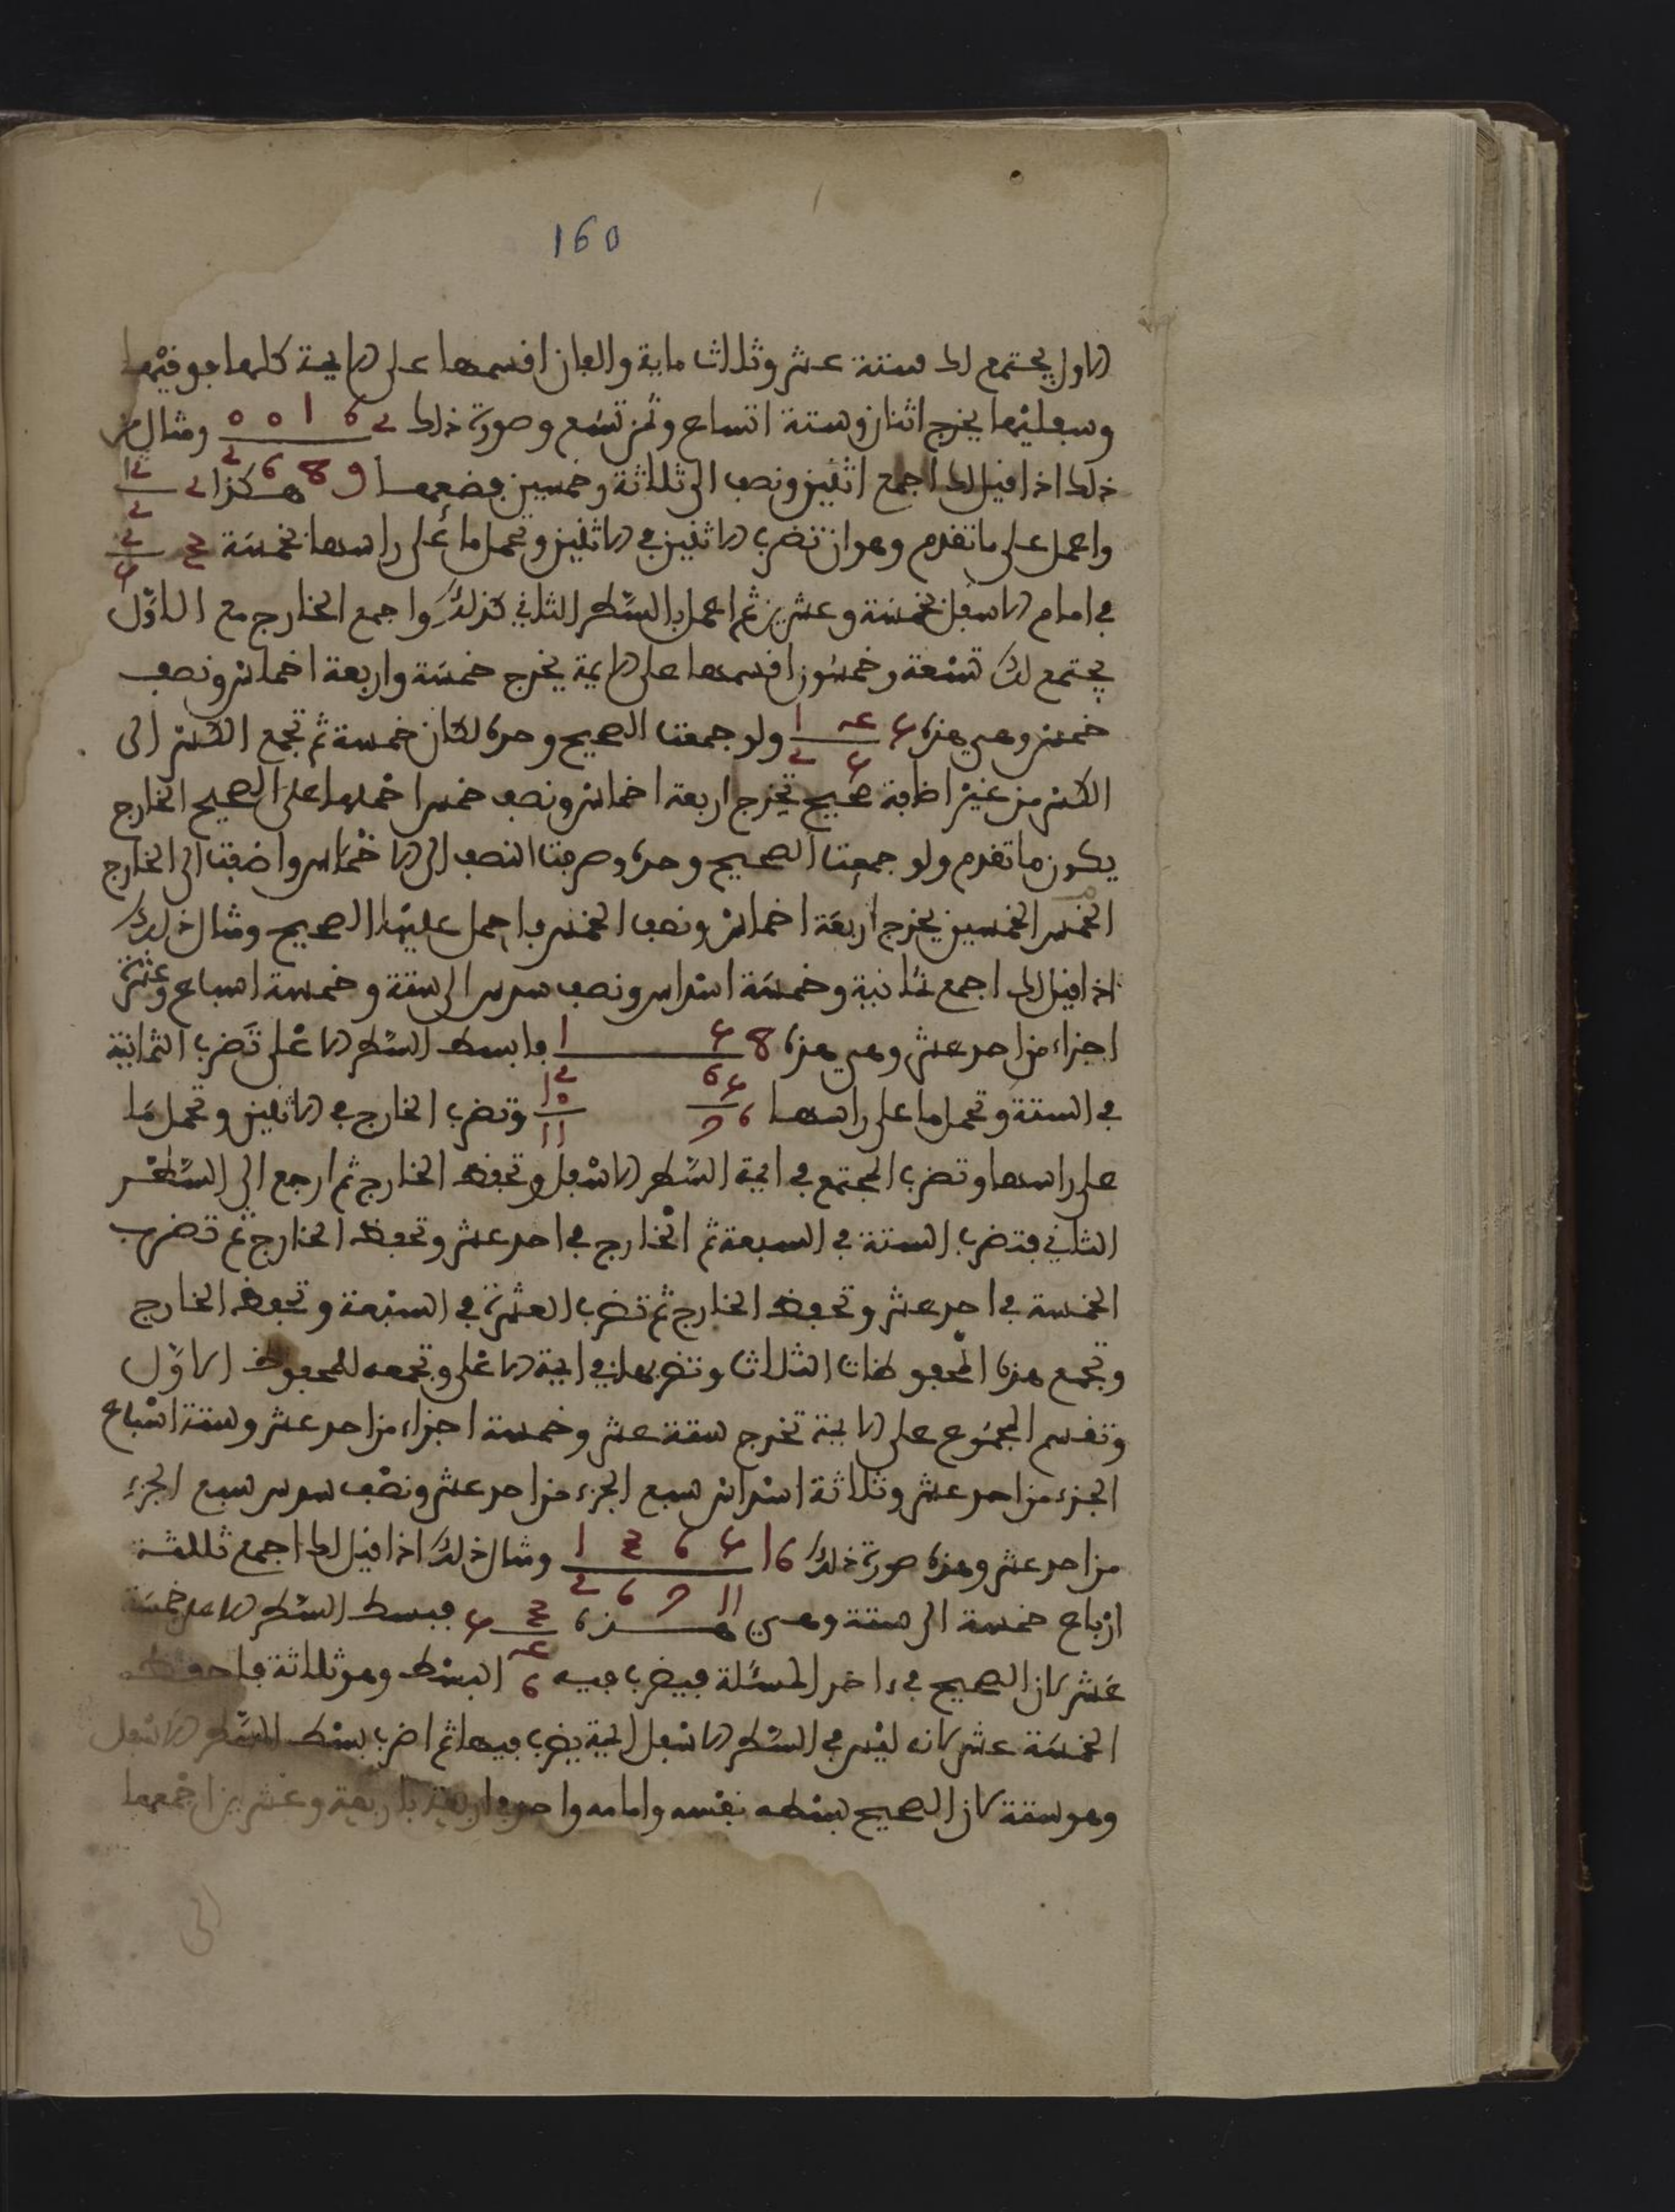 160
الاول يجتمع لك ستة عشر وثلاث ماية والفان اقسمها على الايمة كلها فوقيها
وسفليها يخرج اثنان وستة اتساع وثمن تسع وصورة ذلك 2 6 1 0 0 ومثال من
9 8 6 2
ذلك اذا قيل لك اجمع اثنين ونصف الى ثلاثة وخمسين فضعهما هكذا 2 1
2
واعمل على ما تقدم وهو ان تضرب الاثنين في الاثنين وتحمل ما على راسها بخمسة 3 2
5
في امام الاسفل بخمسة وعشرين ثم اعمل بالسطر الثاني كذلك واجمع الخارج مع الاول
يجتمع لك تسعة وخمسون اقسمها على الايمة يخرج خمسة واربعة اخماس ونصف
خمس وهي هذه 5 4 1 ولو جمعت الصحيح وحده لكان خمسة ثم تجمع الكسر الى
5 2
الكسر من غير اضافة صحيح تخرج اربعة اخماس ونصف خمس احملها على الصحيح الخارج
يكون ما تقدم ولو جمعت الصحيح وحده وصرفت النصف الى الاخماس واضفت الى الخارج
الخمس الخمسين يخرج اربعة اخماس ونصف الخمس فاحمل عليها الصحيح ومثال ذلك
اذا قيل لك اجمع ثمانية وخمسة اسداس ونصف سدس الى ستة وخمسة اسباع وعشرة
اجزاء من احد عشر وهي هذه 8 5 1 فابسط السطر الاعلى تضرب الثمانية
6 2
في الستة وتحمل ما على راسها 6 5 10 وتضرب الخارج في الاثنين وتحمل ما
7 11
على راسها وتضرب المجتمع في ايمة السطر الاسفل وتحفظ الخارج ثم ارجع الى السطر
الثاني فتضرب الستة في السبعة ثم الخارج في احد عشر وتحفظ الخارج ثم تضرب
الخمسة في احد عشر وتحفظ الخارج ثم تضرب العشرة في السبعة وتحفظ الخارج
وتجمع هذه المحفوظات الثلاث وتضربها في ايمة الاعلى وتجمعه للمحفوظ الاول
وتقسم المجموع على الايمة تخرج ستة عشر وخمسة اجزاء من احد عشر وستة اسباع
الجزء من احد عشر وثلاثة اسداس سبع الجزء من احد عشر ونصف سدس سبع الجزء
من احد عشر وهذه صورة ذلك 16 5 6 3 1 ومثال ذلك اذا قيل لك اجمع ثلاثة
11 7 6 2
ارباع خمسة الى ستة وهي هذه 3 5 فبسط السطر الاعلى خمسة
4
عشر لان الصحيح في اخر المسئلة فيضرب فيه 6 البسط وهو ثلاثة فاحفظ
الخمسة عشر لانه ليس في السطر الاسفل ايمة يضرب فيها ثم اضرب بسط السطر الاسفل
وهو ستة لان الصحيح بسطه نفسه وامامه واحد في اربعة باربعة وعشرين اجمعها
الى